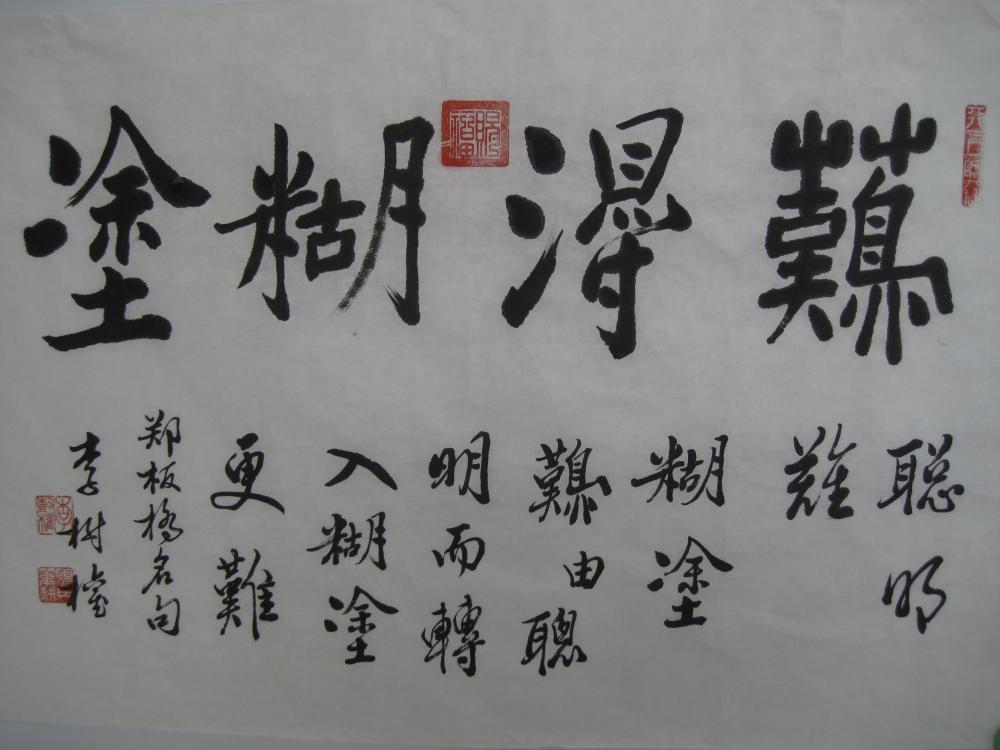 難淂糊塗
賜福
聪明
難
糊塗
難由聰
明而轉
入糊塗
更難
郑板橋名句
李樹